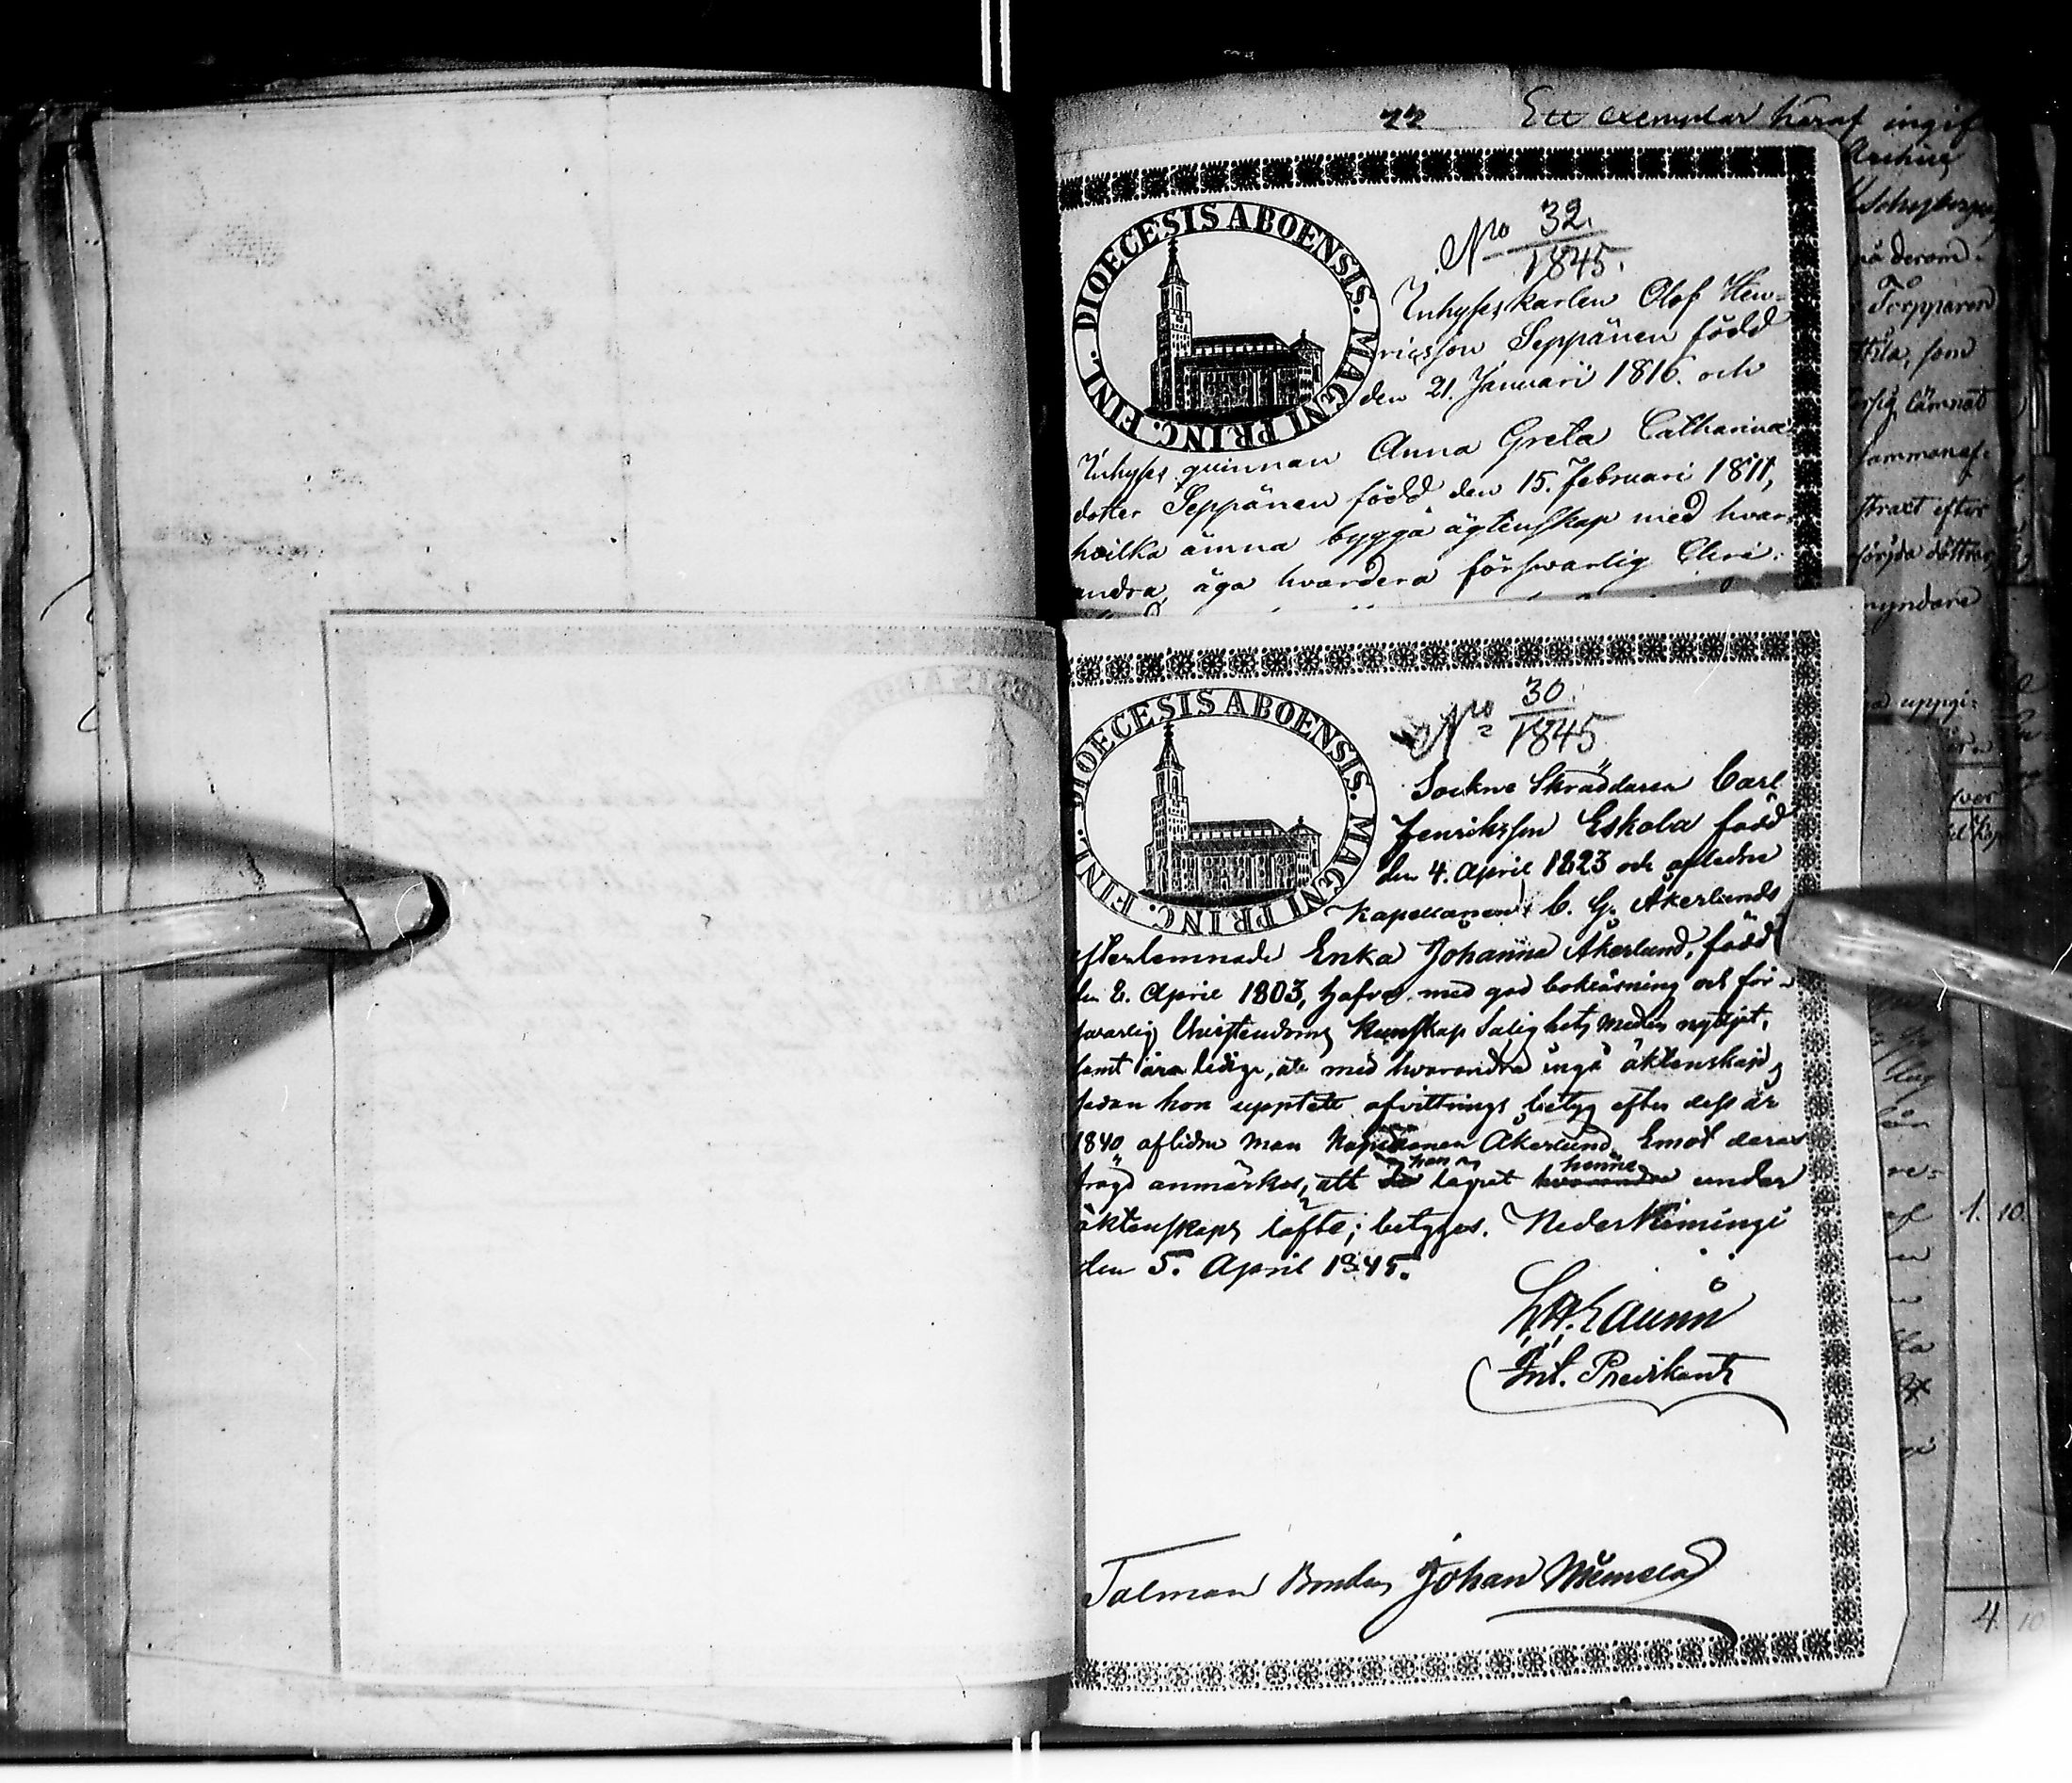 22 Ett exemplar häraf
DIOECESIS ABOENSIS. MAGNI PRINC. FINL.
No 32.
1845.
Inhyses karlen Olof Hen-
ricsson Seppänen född
den 21. Januari 1816. och
Inhyses qvinnan Anna Greta Catharina
dotter Seppänen född den 15. Februari 1811,
hvilka ämna bygga ägtenskap med hvar-
andra, äga hvardera försvarlig Chri-
DIOECESIS ABOENSIS. MAGNI PRINC. FINL.
No 30.
1845
Sockne Skräddaren Carl
Henriksson Eskola född
den 4. April 1823 och aflidne
Kapellanen C. G. Åkerlunds
efterlemnade Enka Johanna Åkerlund, född
den 2. April 1803, hafva med god bokläsning och för-
svarlig Christendoms Kunskap Salighets Medlen nyttjat,
samt äro ledige, att med hvarandra ingå äktenskap,
sedan hon upptett afvittrings betyg efter dess år
1840 aflidne Man Kapellanen Åkerlund. Emot deras
frägd anmärkes, att de han lägrat hvarandra henne under
äktenskaps löfte; betygas. NederKiminge
den 5. April 1845.
Predikant
Talman Bonden Johan
Torpparen
som
lämnat
straxt efter
myndare
uppgi-
1. 10.
4. 10